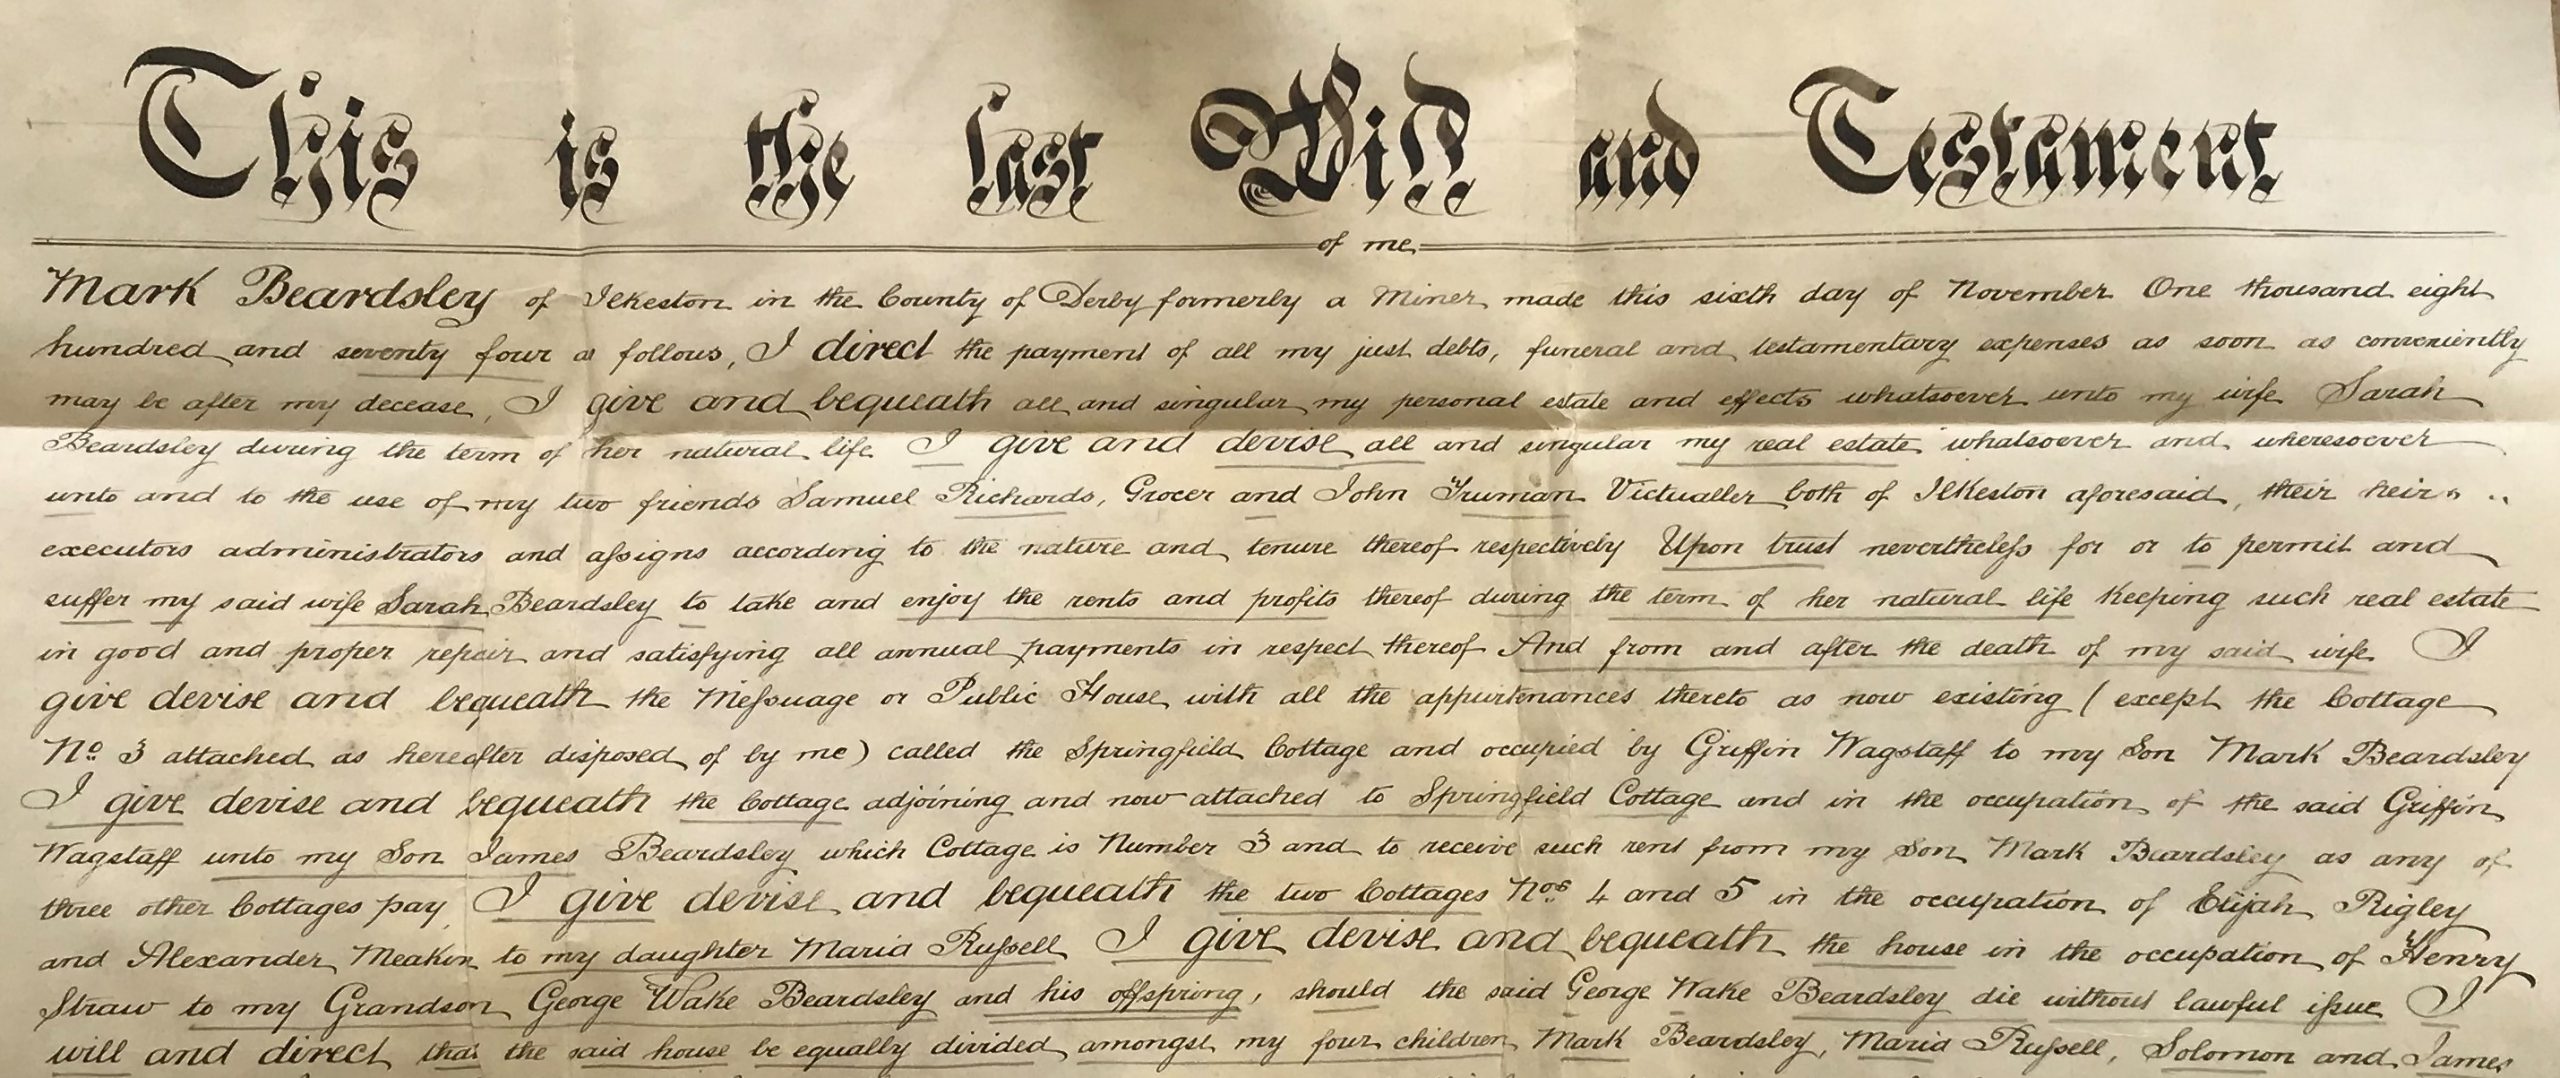 This is the last Will and Testament
of me
Mark Beardsley of Ilkeston in the County of Derby formerly a Miner made this sixth day of November One thousand eight
hundred and seventy four as follows, I direct the payment of all my just debts, funeral and testamentary expenses as soon as conveniently
may be after my decease, I give and bequeath all and singular my personal estate and effects whatsoever unto my wife Sarah
Beardsley during the term of her natural life I give and devise all and singular my real estate whatsoever and wheresoever
unto and to the use of my two friends Samuel Richards, Grocer and John Truman Victualler both of Ilkeston aforesaid, their heirs
executors administrators and assigns according to the nature and tenure thereof respectively Upon trust nevertheless for or to permit and
suffer my said wife Sarah Beardsley to take and enjoy the rents and profits thereof during the term of her natural life Keeping such real estate
in good and proper repair and satisfying all annual payments in respect thereof And from and after the death of my said wife I
give devise and bequeath the Messuage or Public House with all the appurtenances thereto as now existing (except the Cottage
No. 3 attached as hereafter disposed of by me) called the Springfield Cottage and occupied by Griffin Wagstaff to my Son Mark Beardsley
I give devise and bequeath the Cottage adjoining and now attached to Springfield Cottage and in the occupation of the said Griffin
Wagstaff unto my Son James Beardsley which Cottage is Number 3 and to receive such rent from my Son Mark Beardsley as any of
three other Cottages pay, I give devise and bequeath the two Cottages Nos. 4 and 5 in the occupation of Elijah Rigley
and Alexander Meakin to my daughter Maria Russell I give devise and bequeath the house in the occupation of Henry
Straw to my Grandson George Wake Beardsley and his offspring, should the said George Wake Beardsley die without lawful issue I
will and direct that the said house be equally divided amongst my four children Mark Beardsley, Maria Russell, Solomon and James